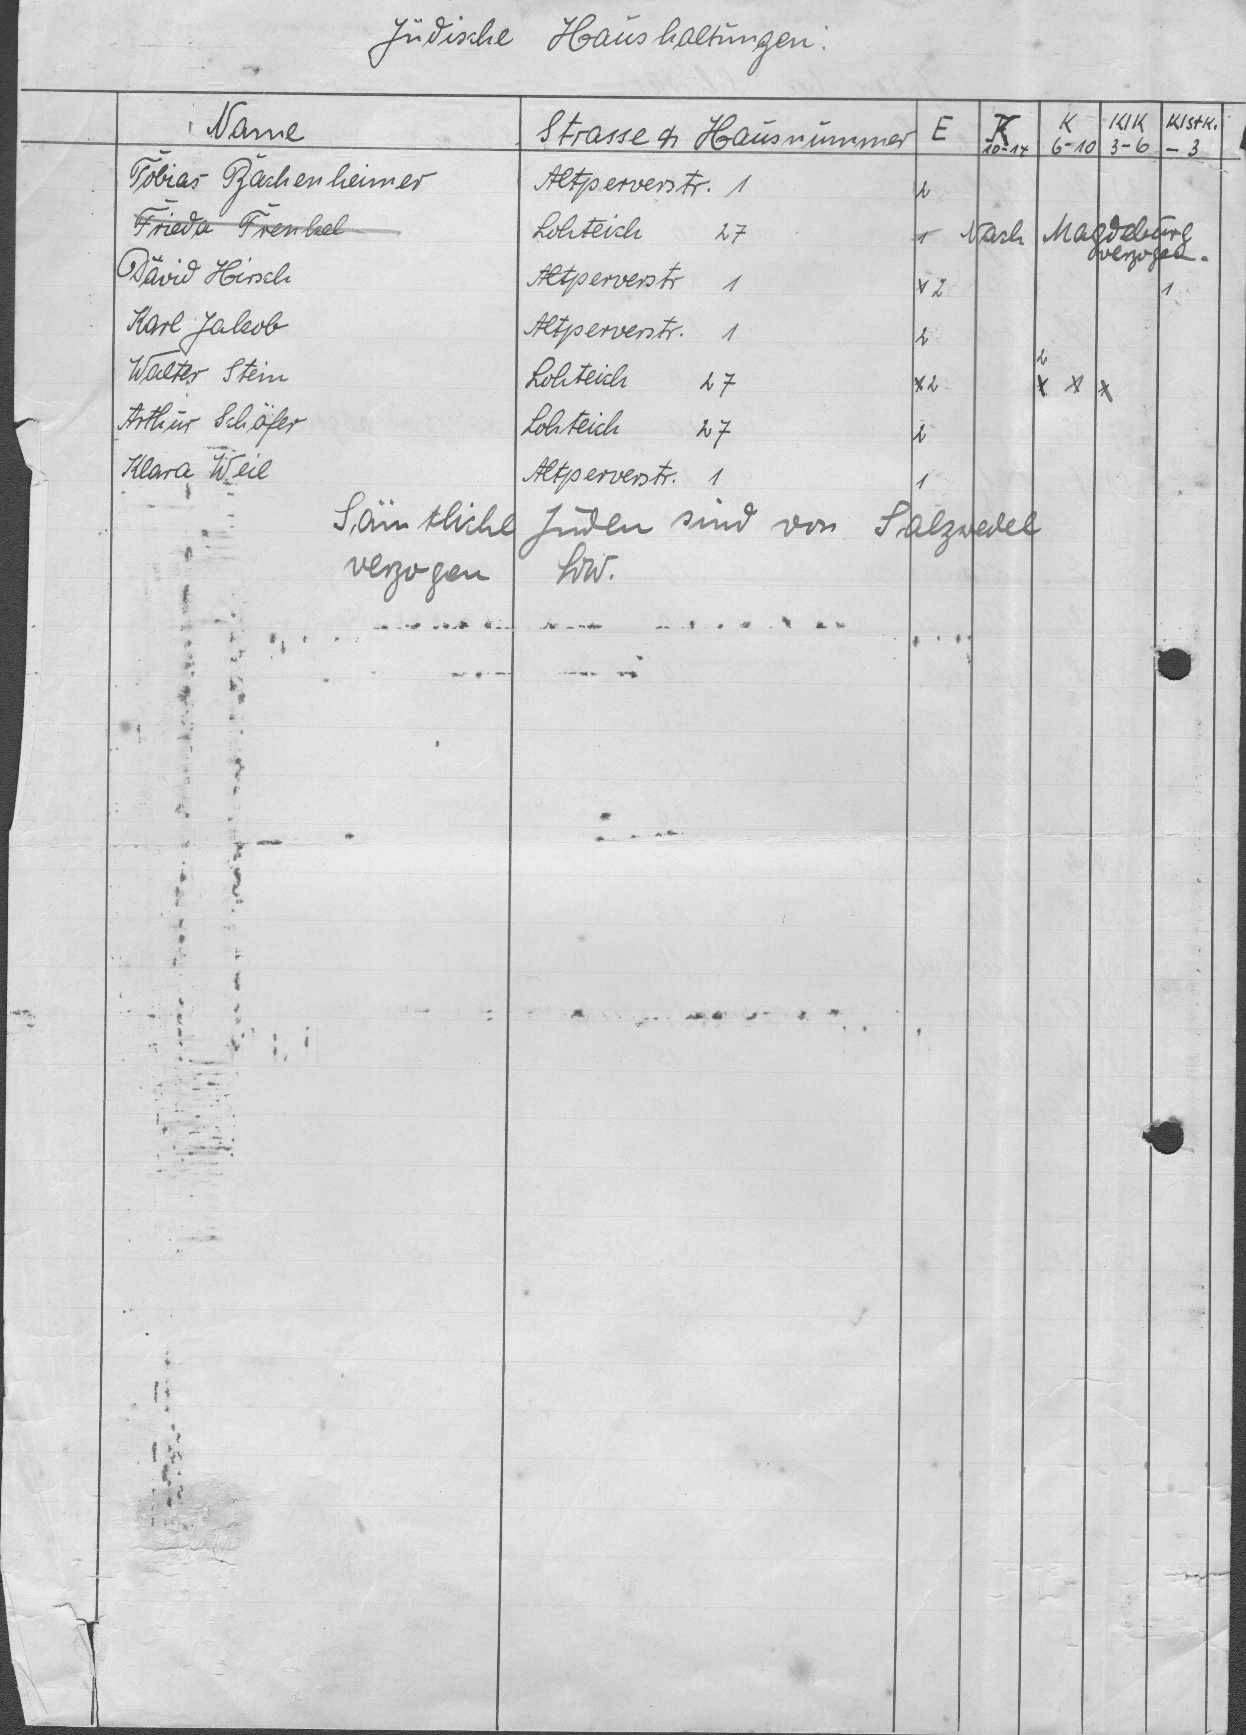 Jüdische Haushaltungen:
Name Strasse & Hausnummer E K 10-14 K 6-10 KlK 3-6 Klstk. - 3
Tobias Bachenheimer Altperverstr. 1 2
Frieda Frenkel Lohteich 27 1 Nach Magdeburg verzogen.
David Hirsch Altperverstr 1 x 2 1
Karl Jakob Altperverstr. 1 2
Walter Stein Lohteich 27 x 2 2 x x x
Arthur Schäfer Lohteich 27 2
Klara Weil Altperverstr. 1 1
Sämtliche Juden sind von Salzwedel
verzogen